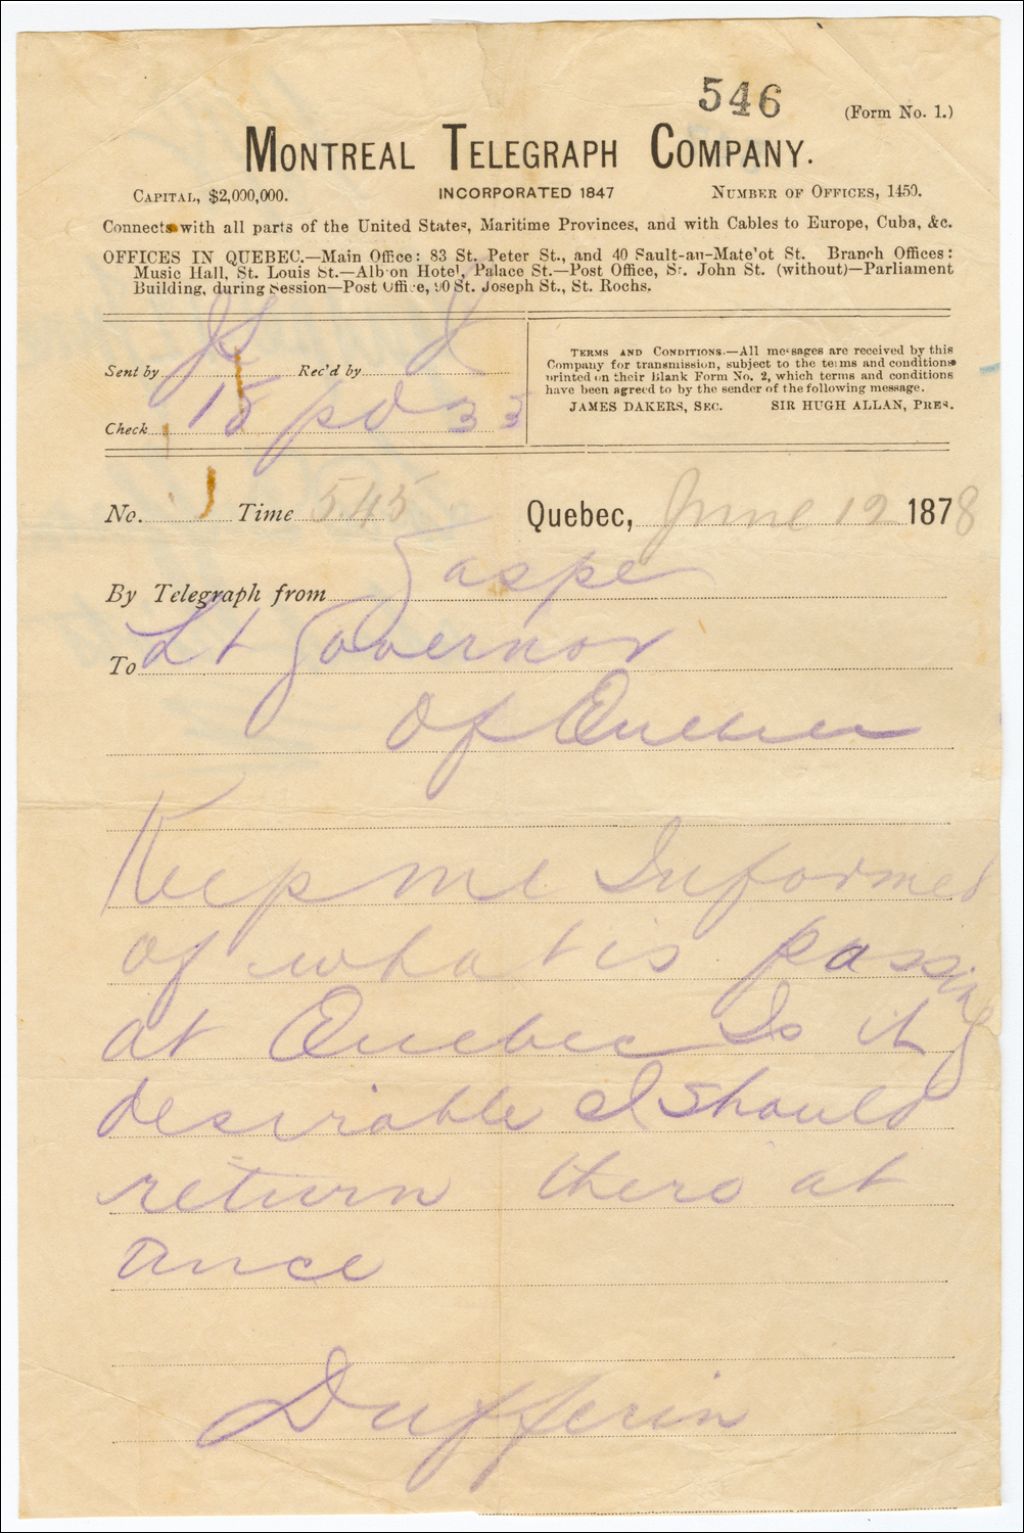 546
(Form No. 1.)
MONTREAL TELEGRAPH COMPANY.
CAPITAL, $2,000,000. INCORPORATED 1847 NUMBER OF OFFICES, 1450.
Connects with all parts of the United States, Maritime Provinces, and with Cables to Europe, Cuba, &c.
OFFICES IN QUEBEC.—Main Office: 83 St. Peter St., and 40 Sault-au-Mate'ot St. Branch Offices:
Music Hall, St. Louis St.—Albion Hotel, Palace St.—Post Office, St. John St. (without)—Parliament
Building, during Session—Post Office, 90 St. Joseph St., St. Rochs.
Sent by Rec'd by
Check 18 pd 33
TERMS AND CONDITIONS.—All messages are received by this
Company for transmission, subject to the terms and conditions
printed on their Blank Form No. 2, which terms and conditions
have been agreed to by the sender of the following message.
JAMES DAKERS, SEC. SIR HUGH ALLAN, PRES.
No. Time 5.45 Quebec, June 12 1878
By Telegraph from Gaspe
To Lt Governor
of Quebec
Keep me Informed
of what is passing
at Quebec Is it
desirable I should
return there at
once
Dufferin